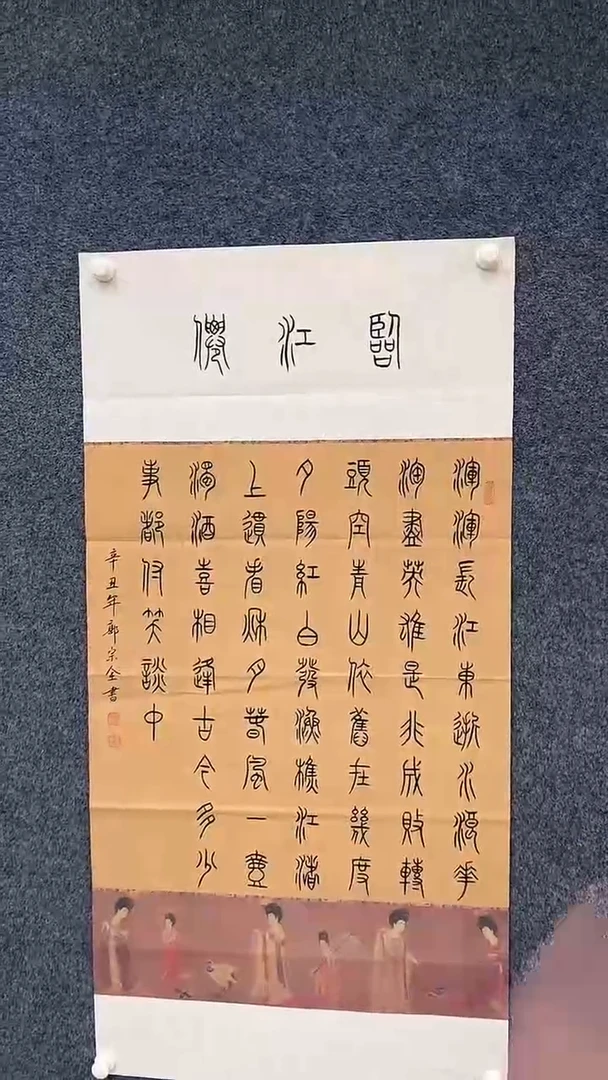 臨江僊
滾滾長江東逝水浪花
淘盡英雄是非成敗轉
頭空青山依舊在幾度
夕陽紅白發漁樵江渚
上慣看秋月春風一壺
濁酒喜相逢古今多少
事都付笑談中
辛丑年郭宗全書